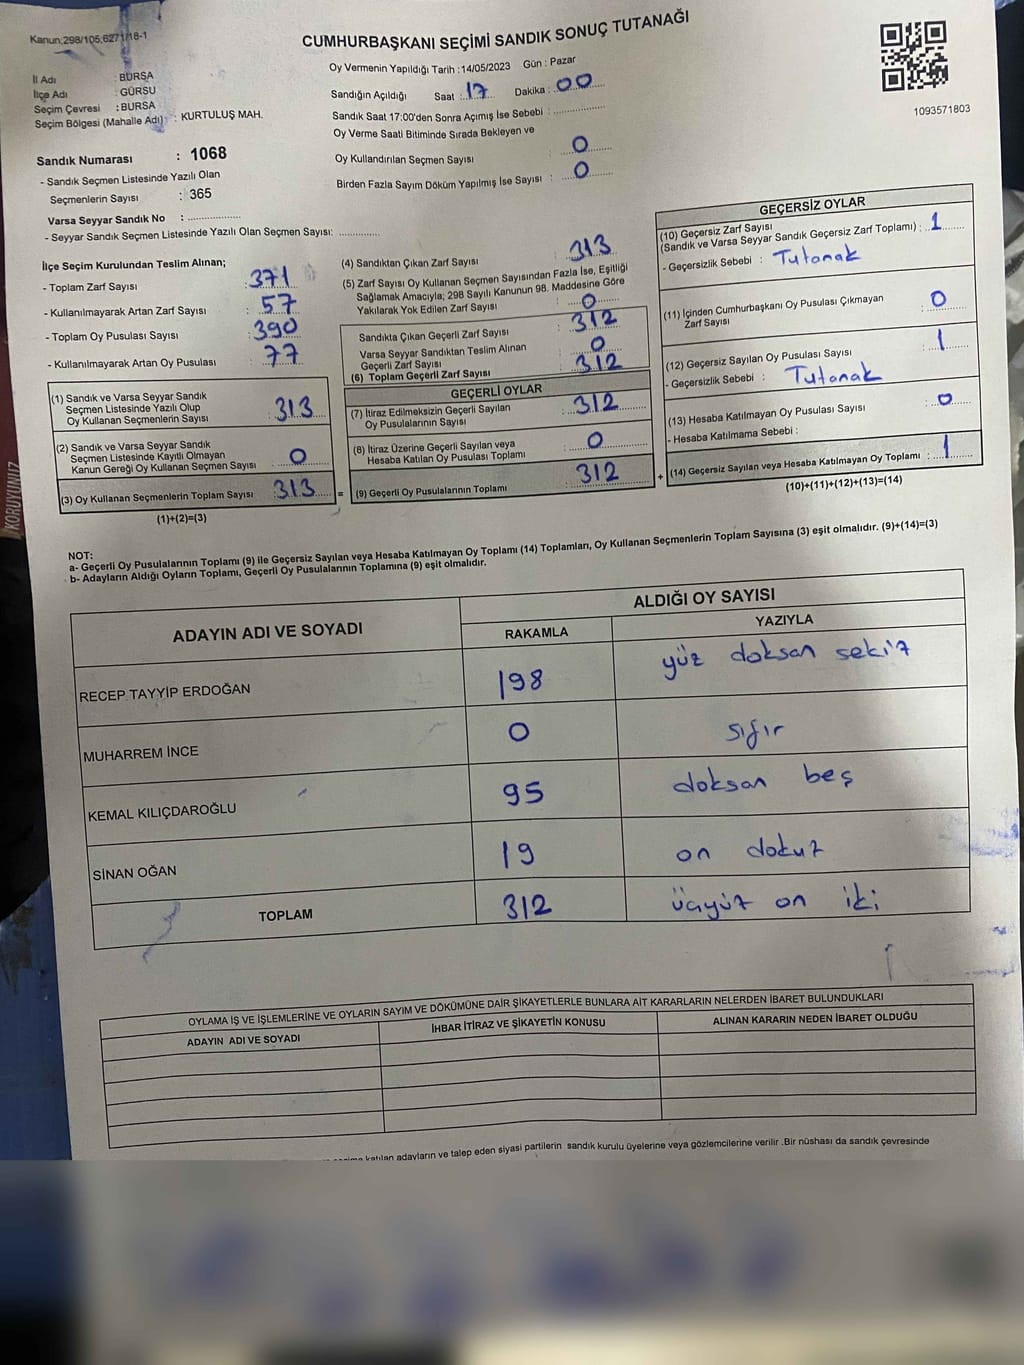 Kanun;298/105;6271/18-1
CUMHURBAŞKANI SEÇİMİ SANDIK SONUÇ TUTANAĞI
1093571803
İl Adı : BURSA
İlçe Adı : GÜRSU
Seçim Çevresi : BURSA
Seçim Bölgesi (Mahalle Adı) : KURTULUŞ MAH.
Oy Vermenin Yapıldığı Tarih :14/05/2023 Gün : Pazar
Sandığın Açıldığı Saat : 17 Dakika : 00
Sandık Saat 17:00'den Sonra Açımış İse Sebebi :
Oy Verme Saati Bitiminde Sırada Bekleyen ve
Oy Kullandırılan Seçmen Sayısı : 0
Birden Fazla Sayım Döküm Yapılmış İse Sayısı : 0
Sandık Numarası : 1068
- Sandık Seçmen Listesinde Yazılı Olan
Seçmenlerin Sayısı : 365
Varsa Seyyar Sandık No :
- Seyyar Sandık Seçmen Listesinde Yazılı Olan Seçmen Sayısı:
İlçe Seçim Kurulundan Teslim Alınan;
- Toplam Zarf Sayısı : 371
- Kullanılmayarak Artan Zarf Sayısı : 57
- Toplam Oy Pusulası Sayısı : 390
- Kullanılmayarak Artan Oy Pusulası : 77
(1) Sandık ve Varsa Seyyar Sandık
Seçmen Listesinde Yazılı Olup
Oy Kullanan Seçmenlerin Sayısı : 313
(2) Sandık ve Varsa Seyyar Sandık
Seçmen Listesinde Kayıtlı Olmayan
Kanun Gereği Oy Kullanan Seçmen Sayısı : 0
(3) Oy Kullanan Seçmenlerin Toplam Sayısı : 313 =
(1)+(2)=(3)
(4) Sandıktan Çıkan Zarf Sayısı : 313
(5) Zarf Sayısı Oy Kullanan Seçmen Sayısından Fazla İse, Eşitliği
Sağlamak Amacıyla; 298 Sayılı Kanunun 98. Maddesine Göre
Yakılarak Yok Edilen Zarf Sayısı : 0
Sandıkta Çıkan Geçerli Zarf Sayısı : 312
Varsa Seyyar Sandıktan Teslim Alınan
Geçerli Zarf Sayısı : 0
(6) Toplam Geçerli Zarf Sayısı : 312
GEÇERLİ OYLAR
(7) İtiraz Edilmeksizin Geçerli Sayılan
Oy Pusulalarının Sayısı : 312
(8) İtiraz Üzerine Geçerli Sayılan veya
Hesaba Katılan Oy Pusulası Toplamı : 0
(9) Geçerli Oy Pusulalarının Toplamı : 312 +
GEÇERSİZ OYLAR
(10) Geçersiz Zarf Sayısı
(Sandık ve Varsa Seyyar Sandık Geçersiz Zarf Toplamı) : 1
- Geçersizlik Sebebi : Tutanak
(11) İçinden Cumhurbaşkanı Oy Pusulası Çıkmayan
Zarf Sayısı : 0
(12) Geçersiz Sayılan Oy Pusulası Sayısı : 1
- Geçersizlik Sebebi : Tutanak
(13) Hesaba Katılmayan Oy Pusulası Sayısı : 0
- Hesaba Katılmama Sebebi :
(14) Geçersiz Sayılan veya Hesaba Katılmayan Oy Toplamı : 1
(10)+(11)+(12)+(13)=(14)
NOT:
a- Geçerli Oy Pusulalarının Toplamı (9) ile Geçersiz Sayılan veya Hesaba Katılmayan Oy Toplamı (14) Toplamları, Oy Kullanan Seçmenlerin Toplam Sayısına (3) eşit olmalıdır. (9)+(14)=(3)
b- Adayların Aldığı Oyların Toplamı, Geçerli Oy Pusulalarının Toplamına (9) eşit olmalıdır.
ADAYIN ADI VE SOYADI
ALDIĞI OY SAYISI
RAKAMLA YAZIYLA
RECEP TAYYİP ERDOĞAN 198 yüz doksan sekiz
MUHARREM İNCE 0 sıfır
KEMAL KILIÇDAROĞLU 95 doksan beş
SİNAN OĞAN 19 on dokuz
TOPLAM 312 üçyüz on iki
OYLAMA İŞ VE İŞLEMLERİNE VE OYLARIN SAYIM VE DÖKÜMÜNE DAİR ŞİKAYETLERLE BUNLARA AİT KARARLARIN NELERDEN İBARET BULUNDUKLARI
ADAYIN ADI VE SOYADI İHBAR İTİRAZ VE ŞİKAYETİN KONUSU ALINAN KARARIN NEDEN İBARET OLDUĞU
katılan adayların ve talep eden siyasi partilerin sandık kurulu üyelerine veya gözlemcilerine verilir .Bir nüshası da sandık çevresinde
KORUYUNUZ